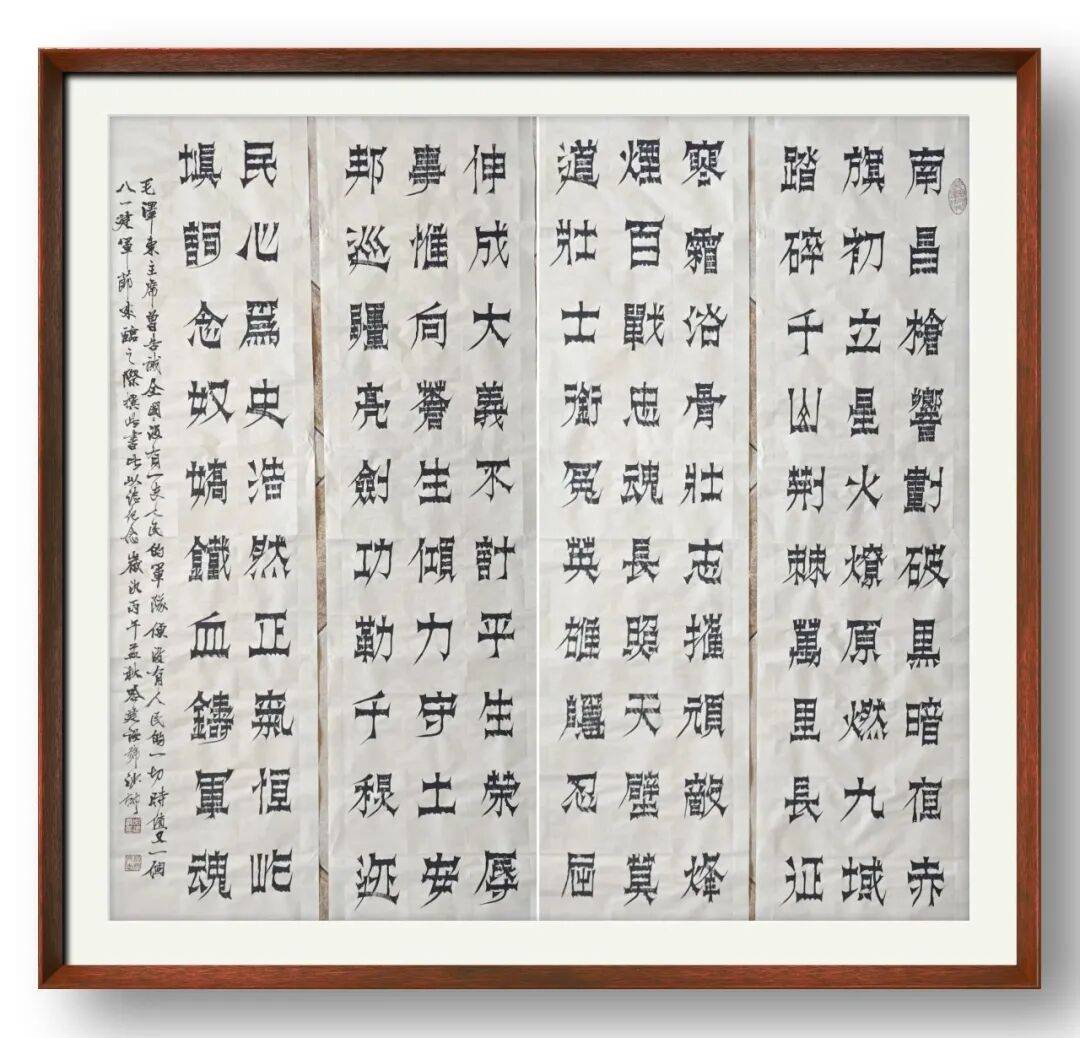 南昌槍響劃破黑暗亱赤
旗初立星火燎原燃九域
踏碎千山荆棘萬里長征
寒霜浴骨壯志摧頑敵烽
煙百戰忠魂長照天壁莫
道壯士銜冤英雄軀忍屈
伸成大義不計平生榮辱
事惟向蒼生傾力守土安
邦巡疆亮劍功勒千稘迹
民心爲史浩然正氣恒屹
填詞念奴嬌鐵血鑄軍魂
毛澤東主席曾告誡全國没有一支人民的軍隊便没有人民的一切時值又一個
八一建軍節来臨之際撰此書此以誌紀念歲次丙午孟秋